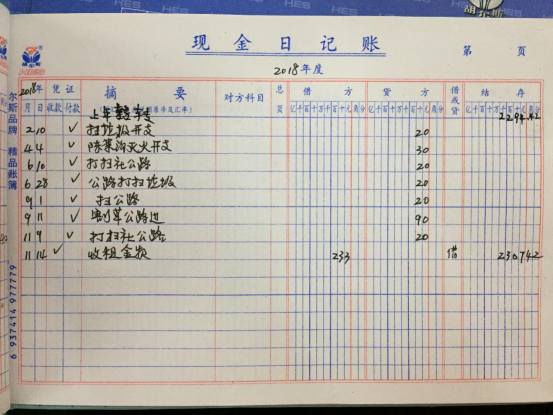 现金日记账
第 页
2018年度
2018年 凭证 摘要 对方科目 总页 借方 贷方 借或贷 结存
月 日 收款 付款 亿千百十万千百十元角分 亿千百十万千百十元角分 亿千百十万千百十元角分
上年 2294.42
2 10 ✓ 扫垃圾开支 20
4 4 ✓ 灭火开支 30
6 10 ✓ 打扫社公路 20
6 28 ✓ 公路打扫垃圾 20
9 1 ✓ 扫公路 20
9 11 ✓ 割草公路边 90
11 9 ✓ 打扫社公路 20
11 14 ✓ 收租金 233 借 230742
尔斯品牌 精品账簿
6 937414 977779